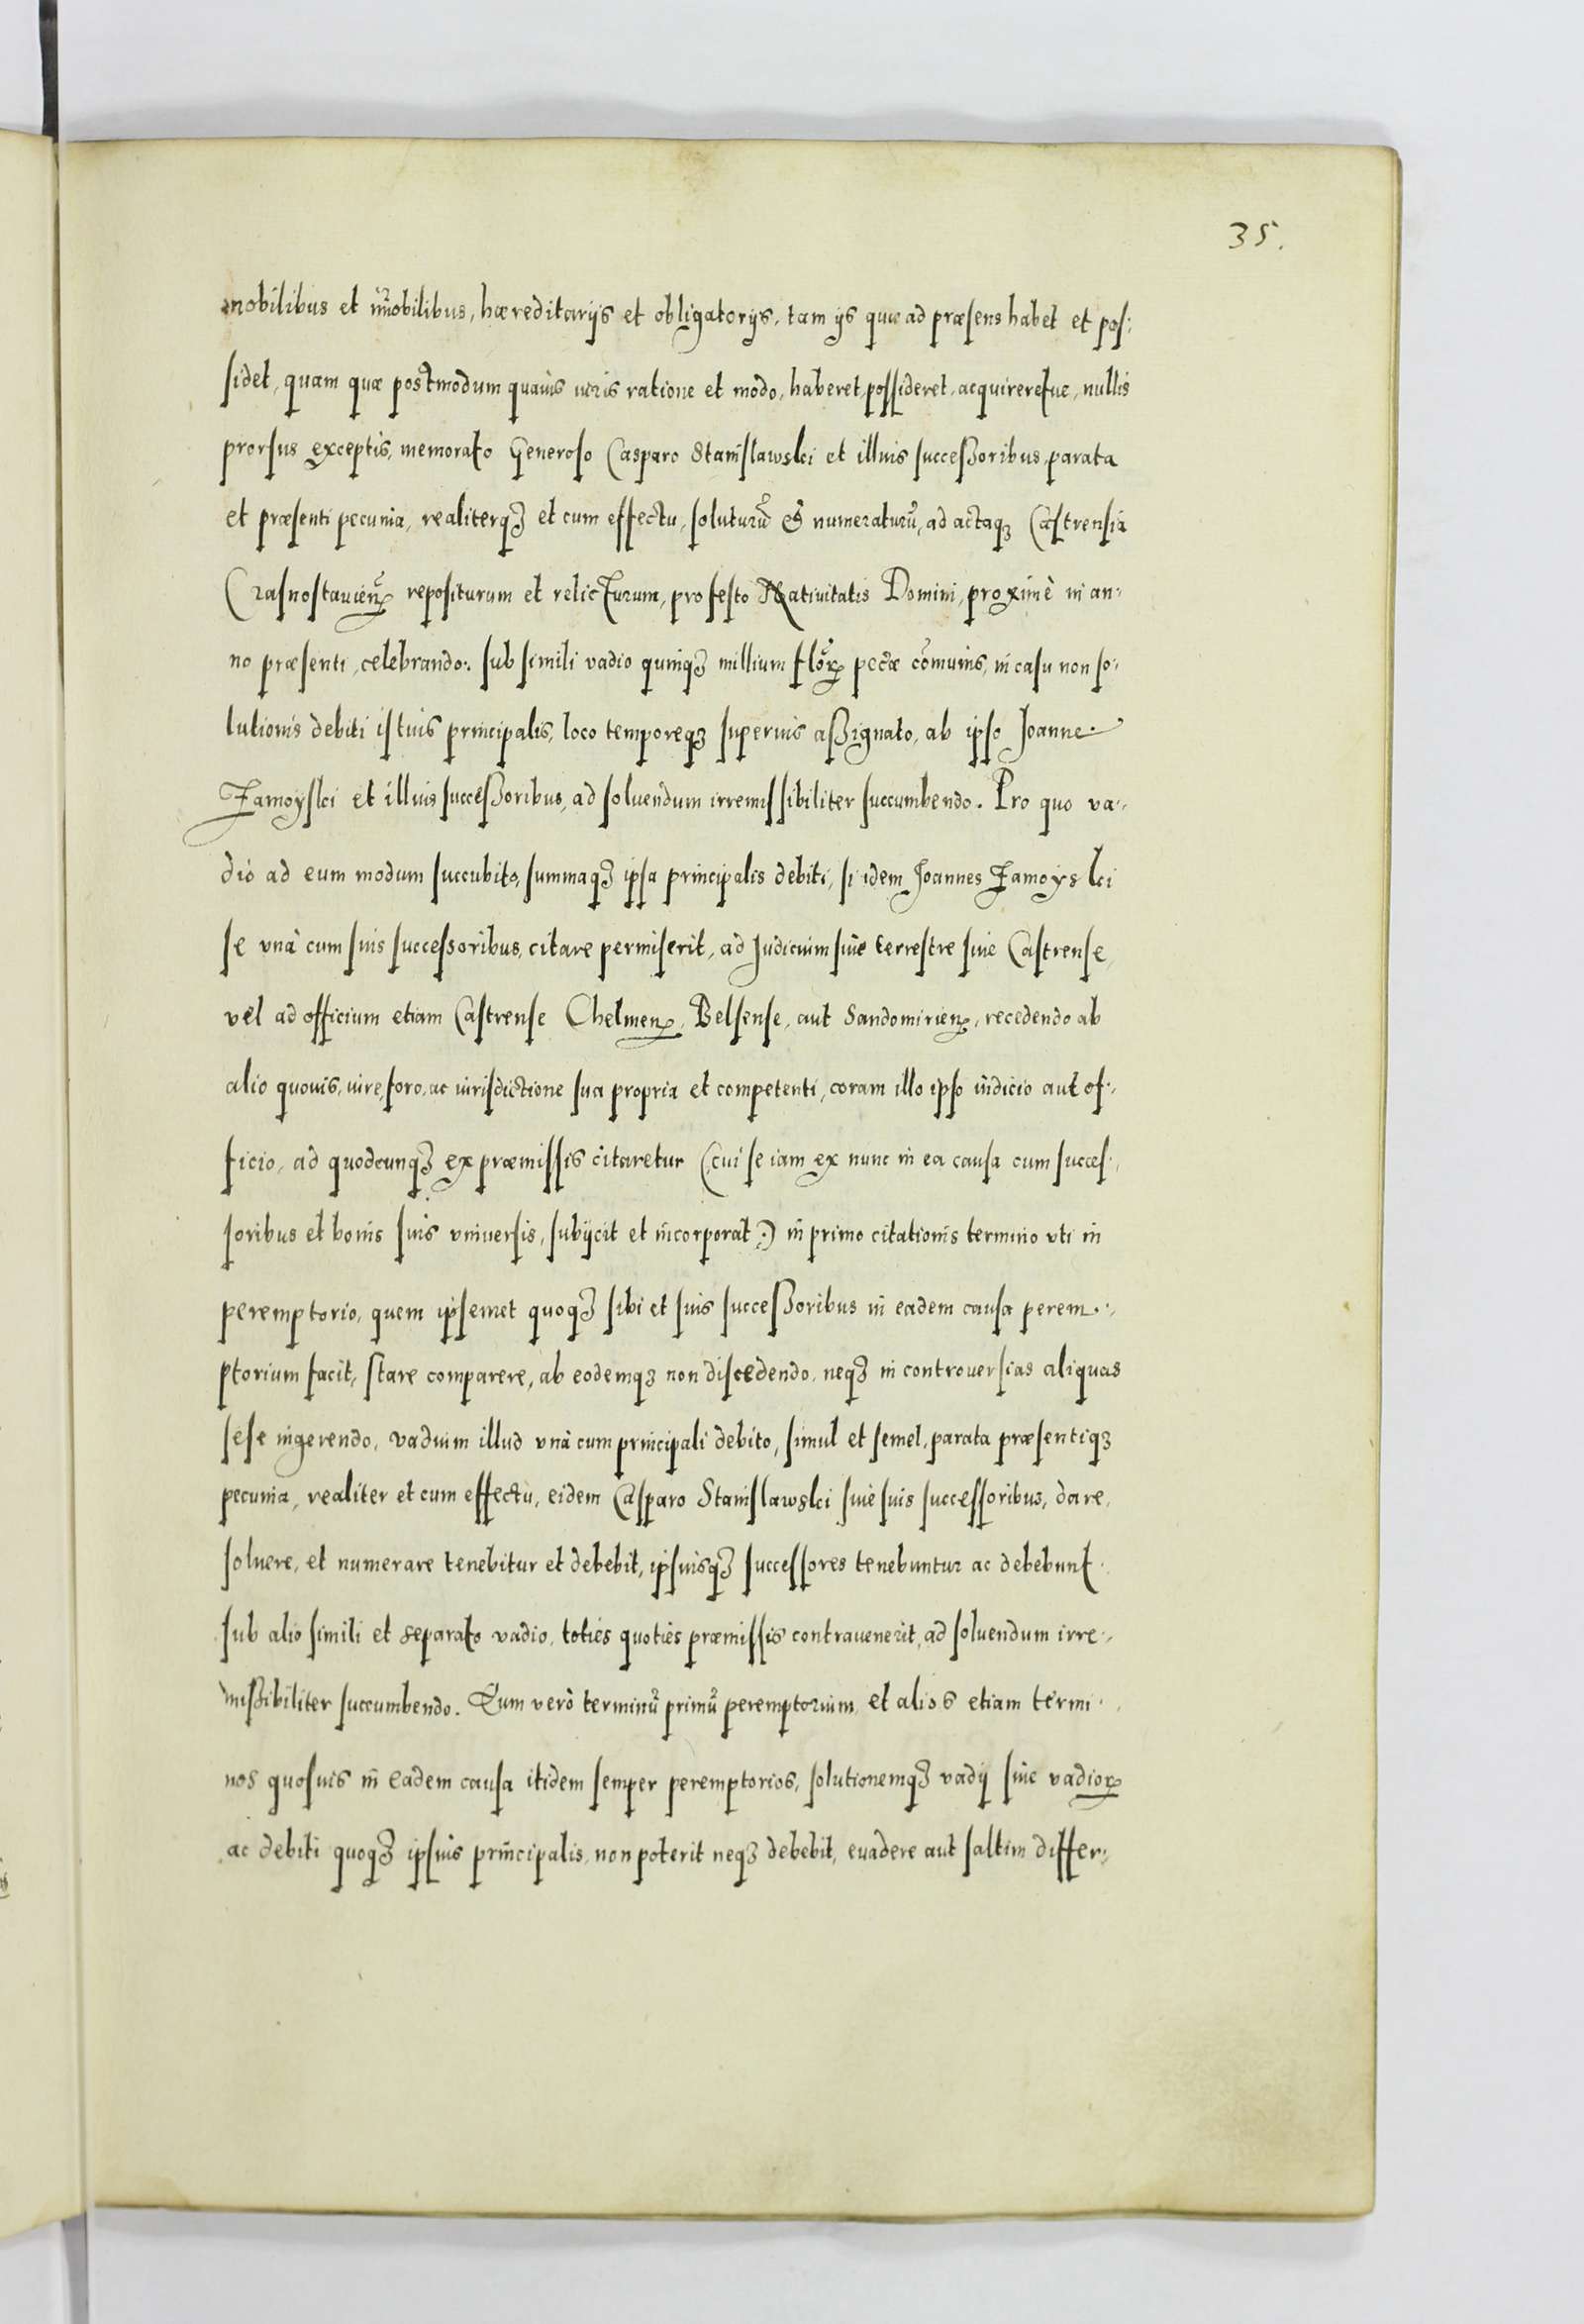 35.
mobilibus et im̃obilibus, hæreditarijs et obligatorijs, tam ijs quæ ad præsens habet et pos:
sidet, quam quæ postmodum quauis iuris ratione et modo, haberet, possideret, acquireretue, nullis
prorsus exceptis, memorato Generoso Casparo Stanislawski et illius successoribus, parata
et præsenti pecunia, realiterqȝ et cum effectu, soluturũ et numeraturũ, ad actaqȝ Castrensia
Crasnostauieñ repositurum et relicturum, pro festo Natiuitatis Domini, proximè in an:
no præsenti, celebrando: sub simili vadio quinqȝ millium florꝝ pecũæ com̃unis, in casu non so:
lutionis debiti istius principalis, loco temporeqȝ superius assignato, ab ipso Joanne
Zamoyski et illius successoribus, ad soluendum irremissibiliter succumbendo. Pro quo va:
dio ad eum modum succubito, summaqȝ ipsa principalis debiti, si idem Joannes Zamoyski
se vnà cum suis successoribus, citare permiserit, ad Judicium siue terrestre siue Castrense,
vel ad officium etiam Castrense Chelmeñ, Belsense, aut Sandomirieñ, recedendo ab
alio quouis, iure, foro, ac iurisdictione sua propria et competenti, coram illo ipso iudicio aut of:
ficio, ad quodcunqȝ ex præmissis citaretur (cui se iam ex nunc in ea causa cum succes:
soribus et bonis suis vniuersis, subijcit et incorporat:) in primo citationis termino vti in
peremptorio, quem ipsemet quoqȝ sibi et suis successoribus in eadem causa perem:
ptorium facit, stare comparere, ab eodemqȝ non discedendo, neqȝ in controuersias aliquas
sese ingerendo, vadium illud vnà cum principali debito, simul et semel, parata præsentiqȝ
pecunia, realiter et cum effectu, eidem Casparo Stanislawski siue suis successoribus, dare,
soluere, et numerare tenebitur et debebit, ipsiusqȝ successores tenebuntur ac debebunt
sub alio simili et separato vadio, toties quoties præmissis contrauenerit, ad soluendum irre:
missibiliter succumbendo. Eum verò terminũ primũ peremptorium, et alios etiam termi:
nos quosuis in eadem causa itidem semper peremptorios, solutionemqȝ vadij siue vadiorꝝ
ac debiti quoqȝ ipsius principalis, non poterit neqȝ debebit, euadere aut saltim differ: